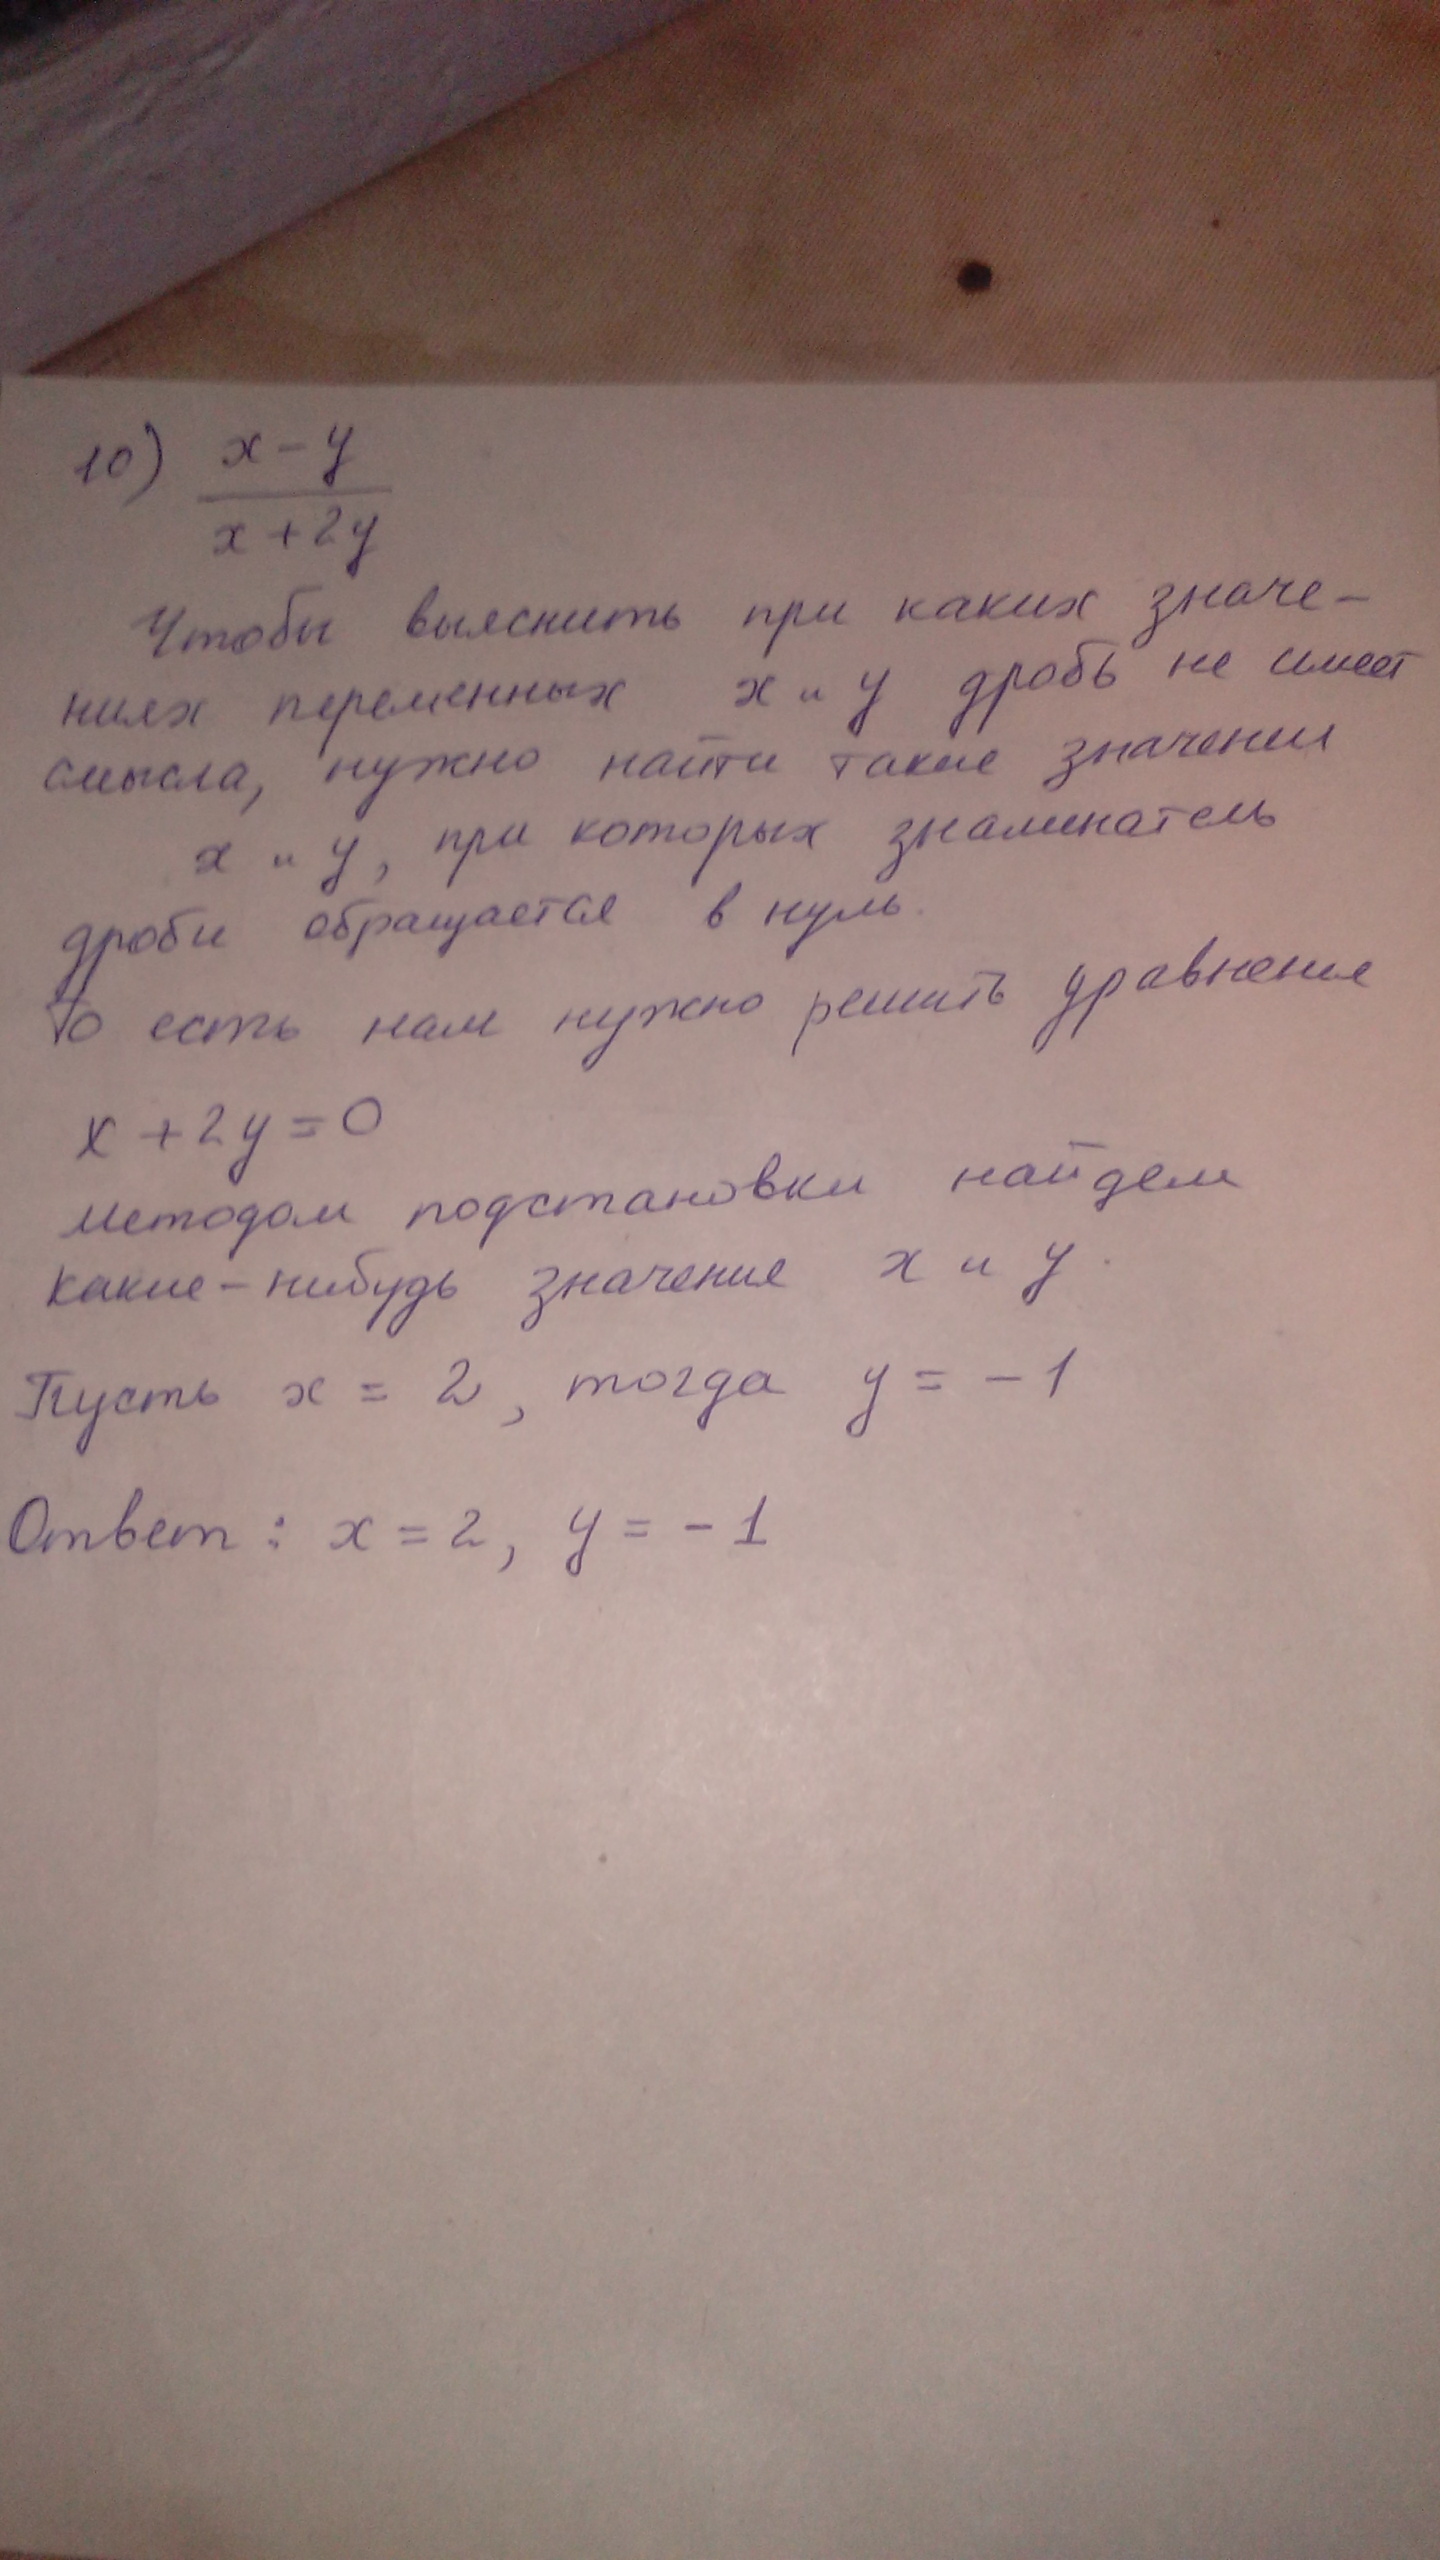 10) x-y
x+2y
Чтобы выяснить при каких значе-
ниях переменных x и y дробь не имеет
смысла, нужно найти такие значения
x и y, при которых знаминатель
дроби обращается в нуль.
То есть нам нужно решить уравнение
x+2y=0
методом подстановки найдем
какие-нибудь значение x и y.
Пусть x = 2, тогда y = -1
Ответ: x=2, y=-1